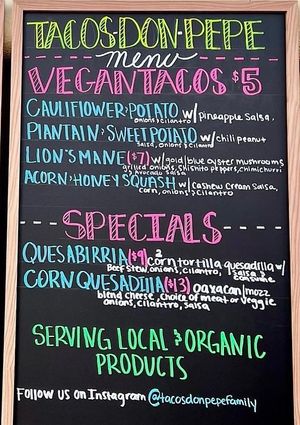 TACOS DON PEPE
menu
VEGAN TACOS $5
CAULIFLOWER & POTATO w/ pineapple salsa,
onions & cilantro
PLANTAIN & SWEET POTATO w/ chili peanut
salsa, onions & cilantro
LION'S MANE ($7) w/ gold/blue oyster mushrooms
grilled onions, shishito peppers, chimichurri
& avocado salsa
ACORN & HONEY SQUASH w/ cashew cream salsa,
corn, onions & cilantro
SPECIALS
QUESABIRRIA ($9) 2 corn tortilla quesadilla w/
Beef stew, onions, cilantro, salsa &
consume
CORN QUESADILLA ($13) oaxacan/mozz
blend cheese, choice of meat or veggie
onions, cilantro, salsa
SERVING LOCAL & ORGANIC
PRODUCTS
Follow us on Instagram @tacosdonpepefamily